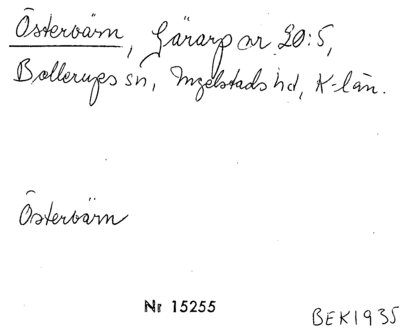 Östervärn, Gärarp nr 20:5,
Bollerups sn, Ingelstads hd, K-län.
Östervärn
Nr 15255
BEK1935